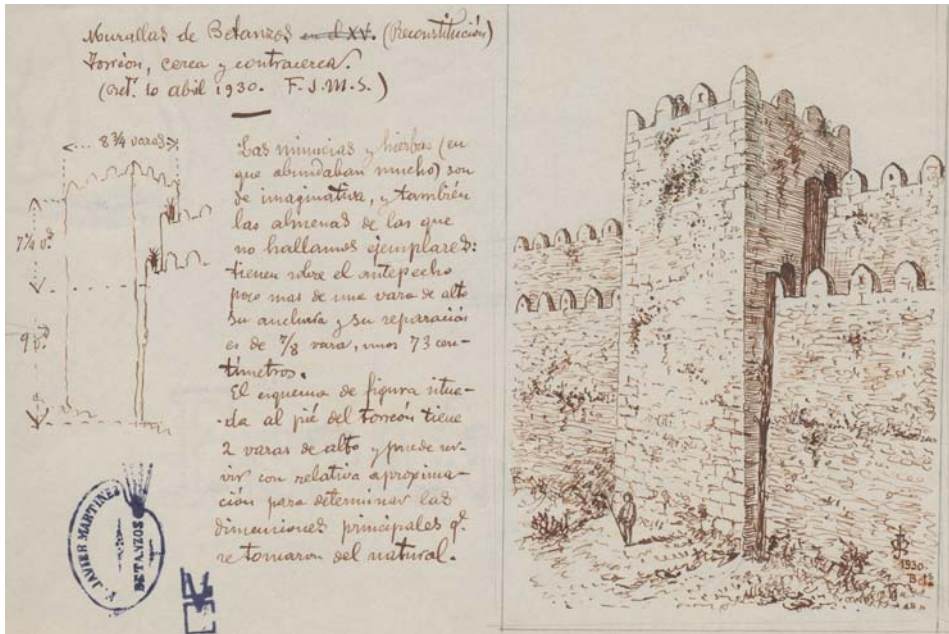 Murallas de Betanzos en el XV. (Reconstitución)
Torreón, cerca y contracerca.
(Oct. 10 abil 1930. F. J. M. S.)
8 3/4 varas
7 1/4 v.s
9 v.s
Las minucias y hierbas (en
que abundaban mucho) son
de imaginativa, y también
las almenas de las que
no hallamos ejemplares:
tienen sobre el antepecho
poco mas de una vara de alto
su anchura y su separación
es de 7/8 vara, unos 73 cen-
tímetros.
El esquema de figura situa-
da al pié del torreón tiene
2 varas de alto y puede ser-
vir con relativa aproxima-
ción para determinar las
dimensiones principales q.e
se tomaron del natural.
F. JAVIER MARTINEZ
BETANZOS
1930